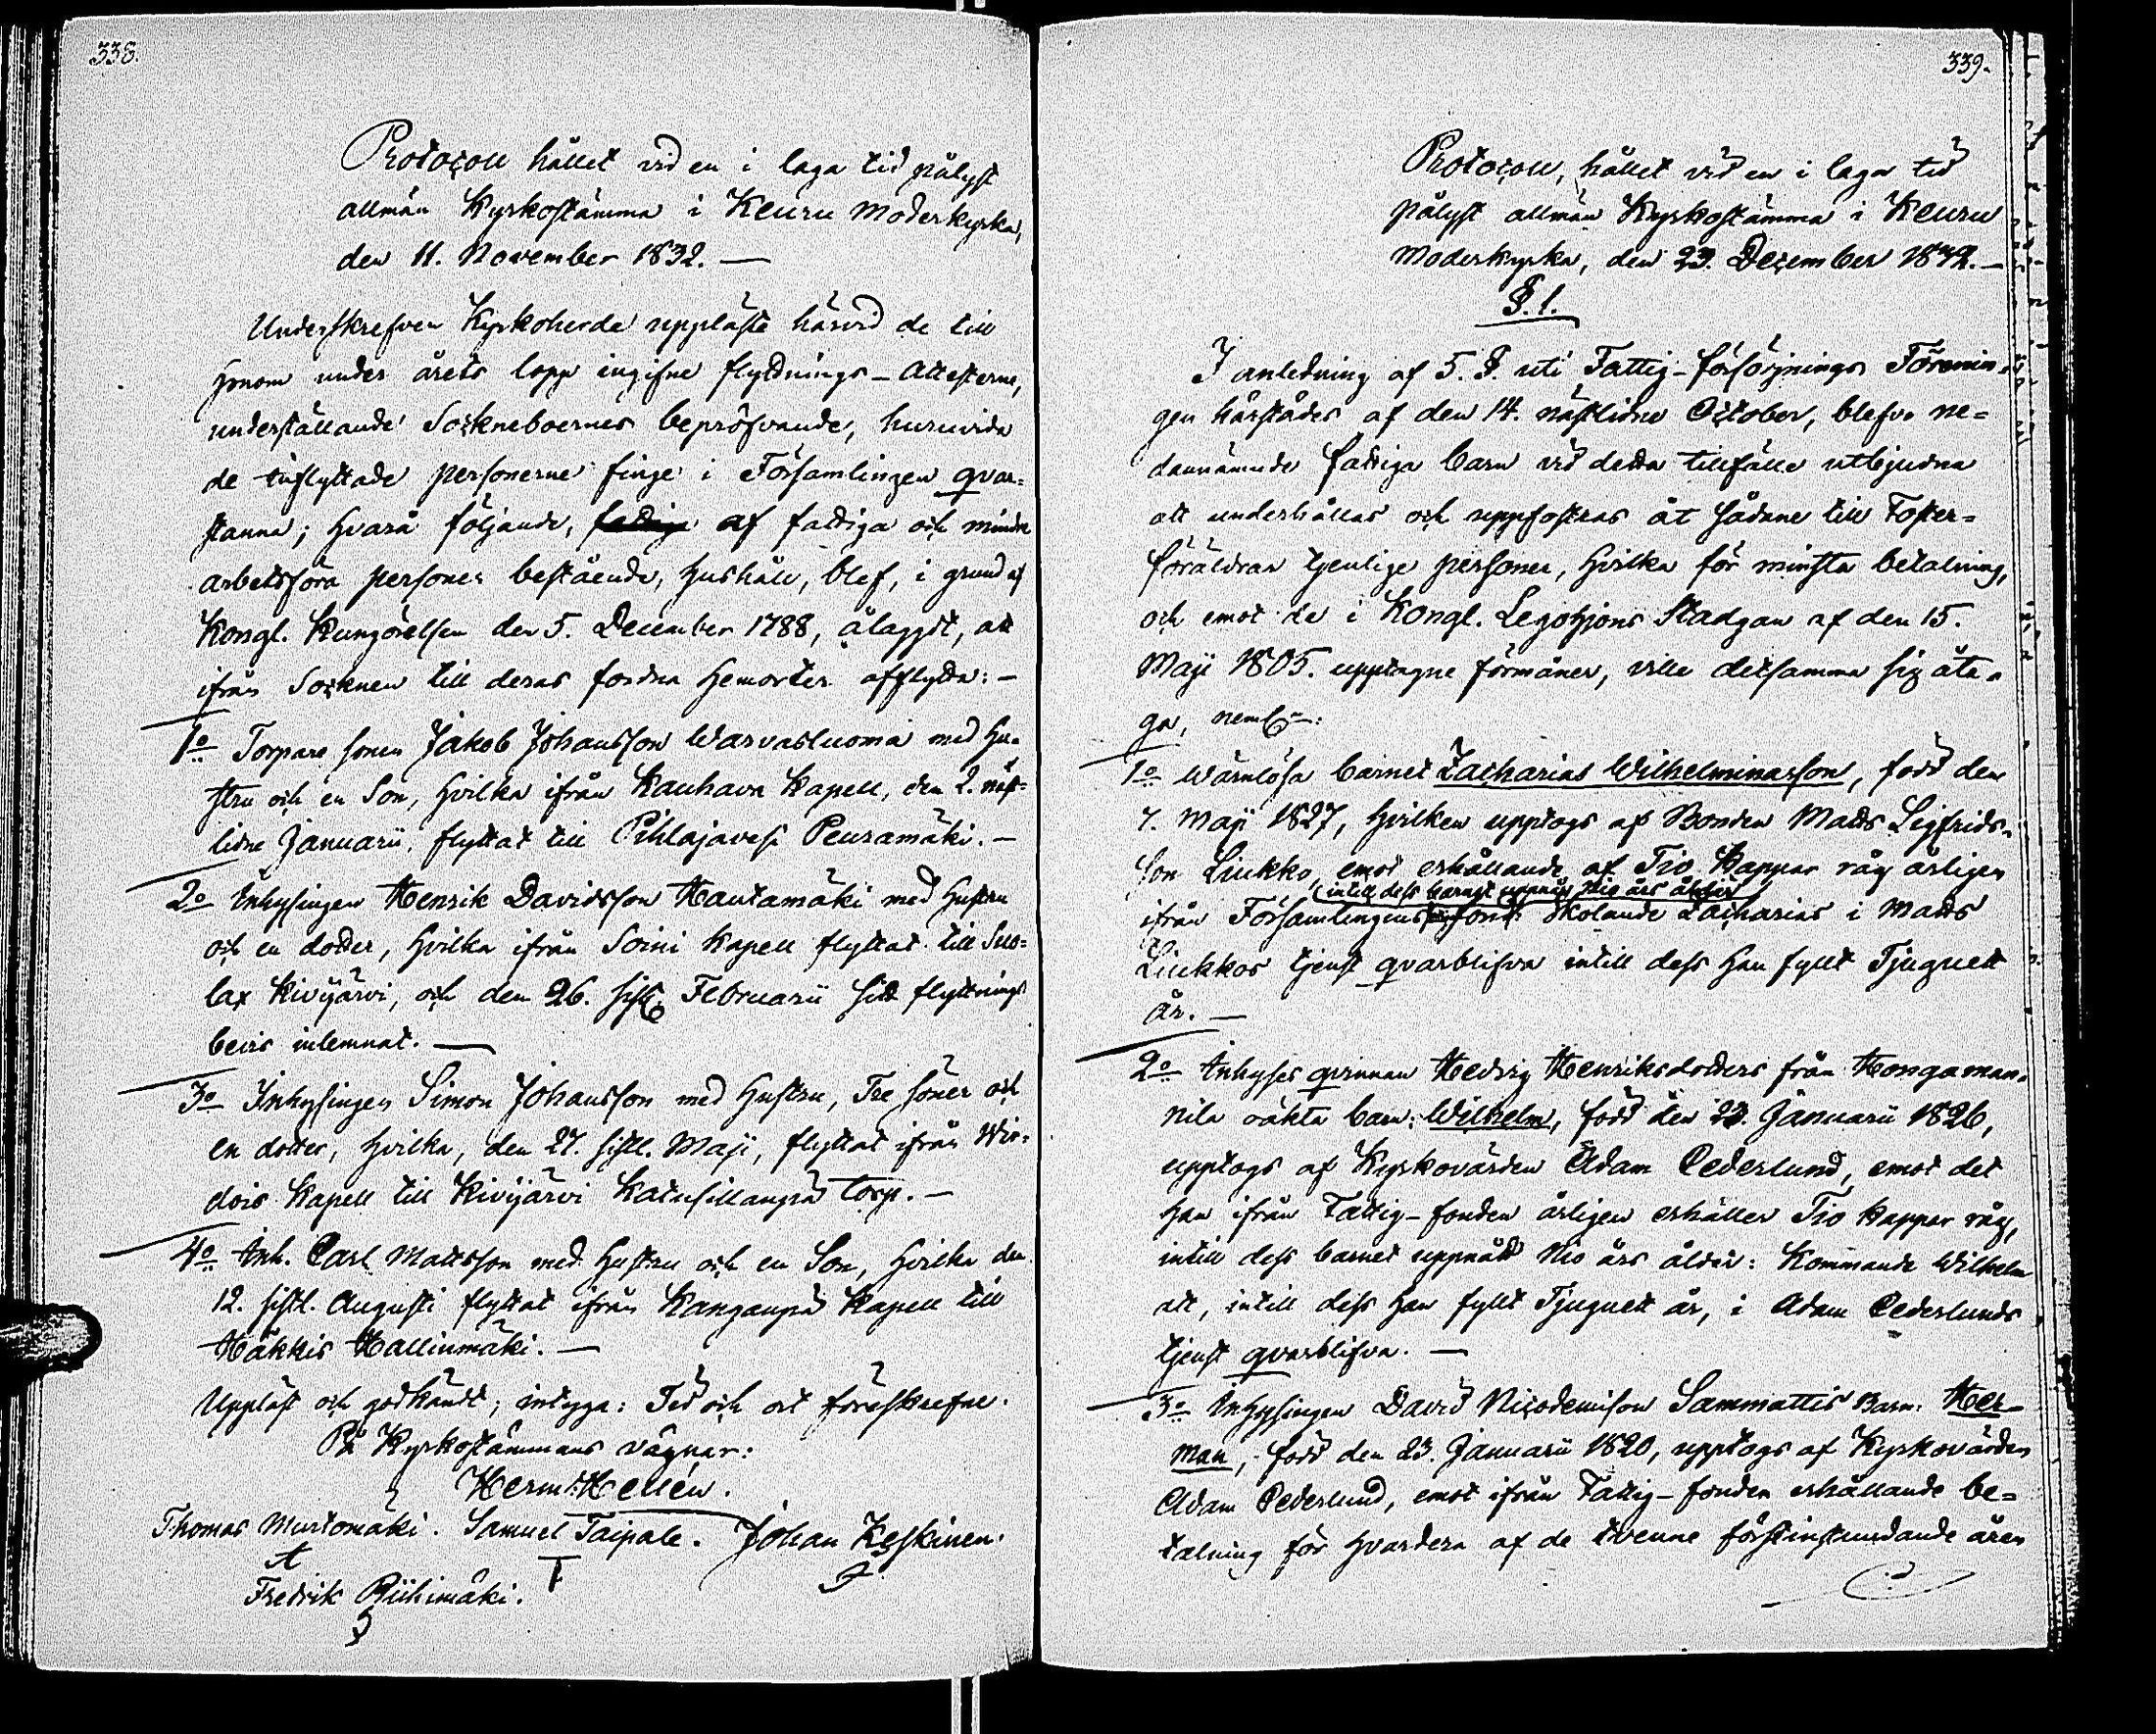 338.
Protocoll hållet vid en i laga tid pålyst
allmän Kyrkostämma i Keuru Moderkyrka,
den 11. November 1832. —
Underskrefven Kyrkoherde uppläste härvid de till
honom under årets lopp ingifne flyttnings-Attesterne,
underställande Sockneboernes bepröfvande, huruvida
de inflyttade personerne finge i Församlingen qvar=
stanna; hvarå följande, fattiga af fattiga och mindre
arbetsföra personer bestående, hushåll, blef, i grund af
Kongl. Kungörelsen den 5. December 1788, ålaggdt, att
ifrån Socknen till deras fordna hemorter afflytta: —
1o Torpare sonen Jakob Johansson Warvasluoma med Hu=
stru och en Son, hvilka ifrån Kauhava Kapell, den 2. näst=
lidne Januarii, flyttat till Pihlajavesi Peuramäki. —
2o Inhysingen Henrik Davidsson Hautamäki med Hustru
och en dotter, hvilka ifrån Soini Kapell flyttat till Suo=
lax Kivijärvi, och den 26. sistl. Februarii sitt flyttnings
bevis inlemnat. —
3o Inhysingen Simon Johansson med Hustru, Tre söner och
en dotter, hvilka, den 27. sistl. Maji, flyttat ifrån Wir=
dois Kapell till Kivijärvi torp. —
4o Inh. Carl Mattsson med Hustru och en Son, hvilka den
12. sistl. Augusti flyttat ifrån Kapell till
Häkkis Hallinmäki. —
Uppläst och godkändt; intyga: Tid och ort föreskrefne.
På Kyrkostämmans vägnar:
Herm: Hellén.
Thomas Murtomäki. Samuel Taipale. Johan Keskinen.
Fredrik Riihimäki.
339.
Protocoll, hållet vid en i laga tid
pålyst allmän Kyrkostämma i Keuru
Moderkyrka, den 23. December 1832. —
§. 1.
I anledning af 5. §. uti Fattig-försörjnings Förenin=
gen härstädes af den 14. nästlidne October, blefvo ne=
dannämnde fattiga barn vid detta tillfälle utbjudna
att underhållas och uppfostras åt sådane till Foster=
föräldrar tjenlige personer, hvilka för minsta betalning,
och emot de i Kongl. Legohjons Stadgan af den 15.
Maji 1805. upptagne förmåner, ville detsamma sig åta=
ga, neml:
1o Wärnlösa barnet Zacharias Wilhelminasson, född den
7. Maji 1827, hvilken upptogs af Bonden Matts Sigfrids=
son Liukko, emot erhållande af Tio Kappar råg årligen
intill dess barnet uppnår Nio års ålder
ifrån Församlingens fond: skolande Zacharias i Matts
Liukkos tjenst qvarblifva intill dess han fyllt Tjuguett
år. —
2o Inhyses qvinnan Hedvig Henriksdotters från Hongaman=
nila oäkta barn: Wilhelm, född den 23. Januarii 1826,
upptogs af Kyrkovärden Adam Cederlund, emot det
han ifrån Fattig-fonden årligen erhåller Tio Kappar råg,
intill dess barnet uppnått Nio års ålder: Kommande Wilhelm
att, intill dess han fyllt Tjuguett år, i Adam Cederlunds
tjenst qvarblifva. —
3o Inhysingen David Nicodemison Sammattis Barn: Her=
man, född den 23. Januarii 1820, upptogs af Kyrkovärden
Adam Cederlund, emot ifrån Fattig-fonden erhållande be=
talning för hvardera af de tvenne förstinstundande åren